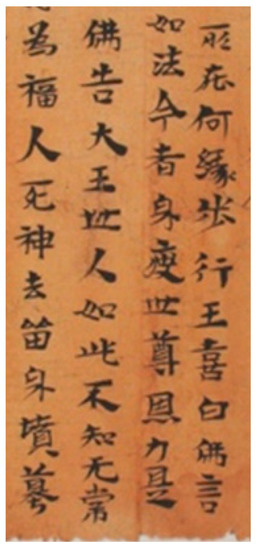 所在何緣步行王喜白佛言
如法今者身瘦世尊恩力是
佛告大王世人如此不知无常
為福人死神去留身墳墓